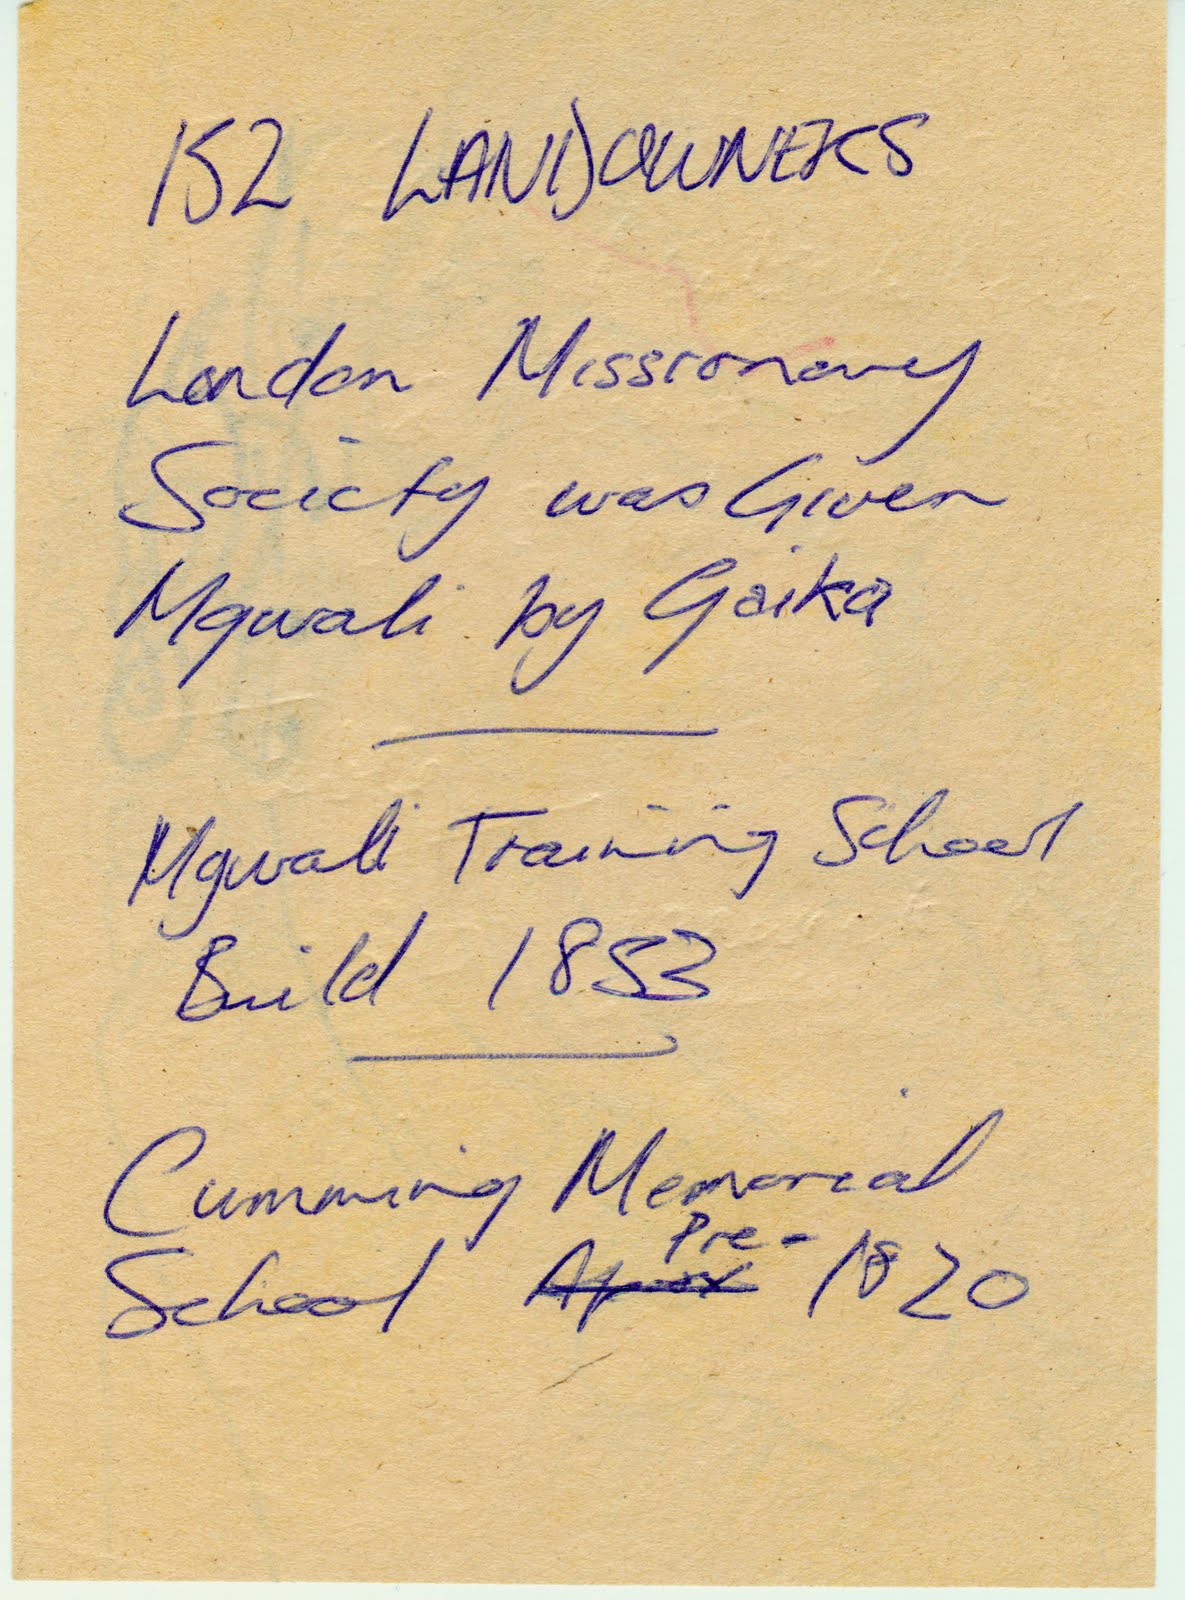 152 LANDOWNERS
London Missionary
Society was Given
Mgwali by Gaika
Mgwali Training School
Build 1853
Cumming Memorial
Pre-
School Aprox 1820